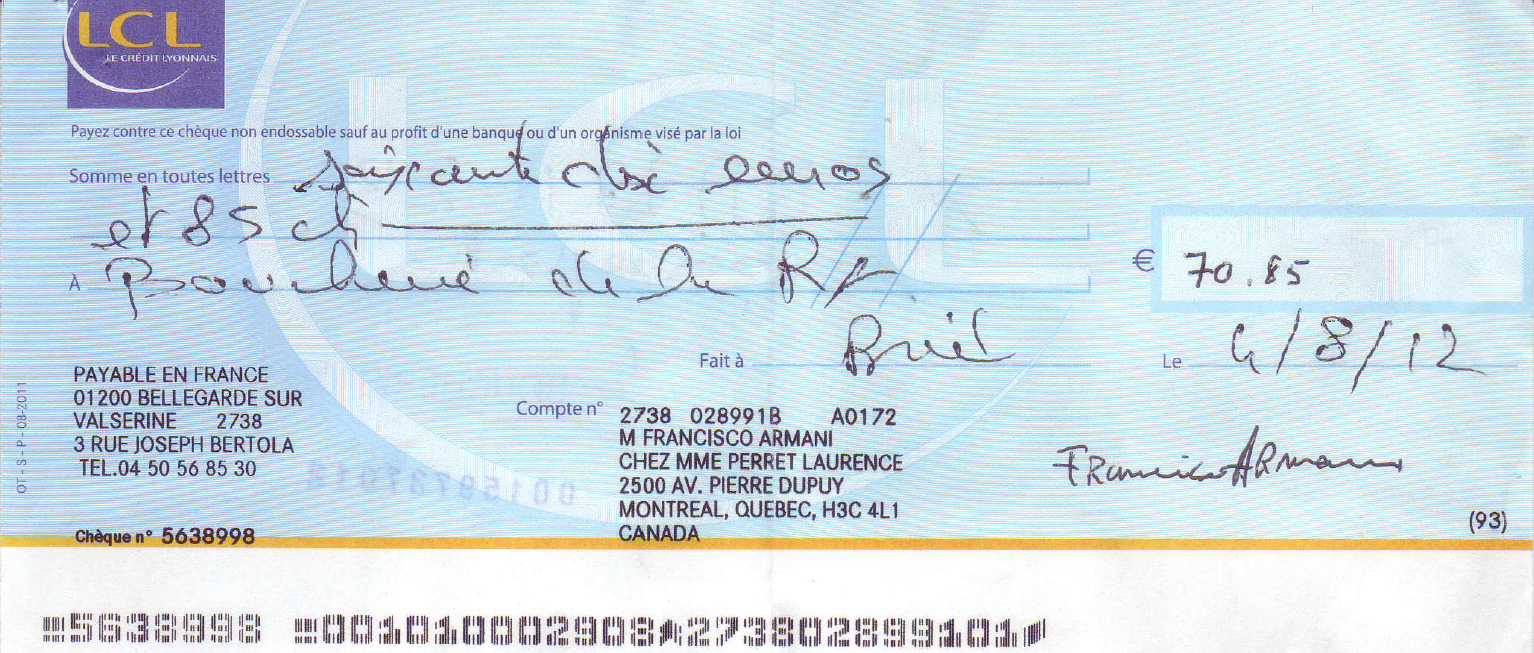 LCL
LE CRÉDIT LYONNAIS
Payez contre ce chèque non endossable sauf au profit d'une banque ou d'un organisme visé par la loi
Somme en toutes lettres soixante dix euros
et 85 ct
À Boucherie de la
€ 70.85
Fait à
Le 4/8/12
PAYABLE EN FRANCE
01200 BELLEGARDE SUR
VALSERINE 2738
3 RUE JOSEPH BERTOLA
TEL.04 50 56 85 30
Chèque n° 5638998
Compte n° 2738 028991B A0172
M FRANCISCO ARMANI
CHEZ MME PERRET LAURENCE
2500 AV. PIERRE DUPUY
MONTREAL, QUEBEC, H3C 4L1
CANADA
Francisco Armani
(93)
OT - S - I - P - 08-2011
5638998 001010002908 273802899101